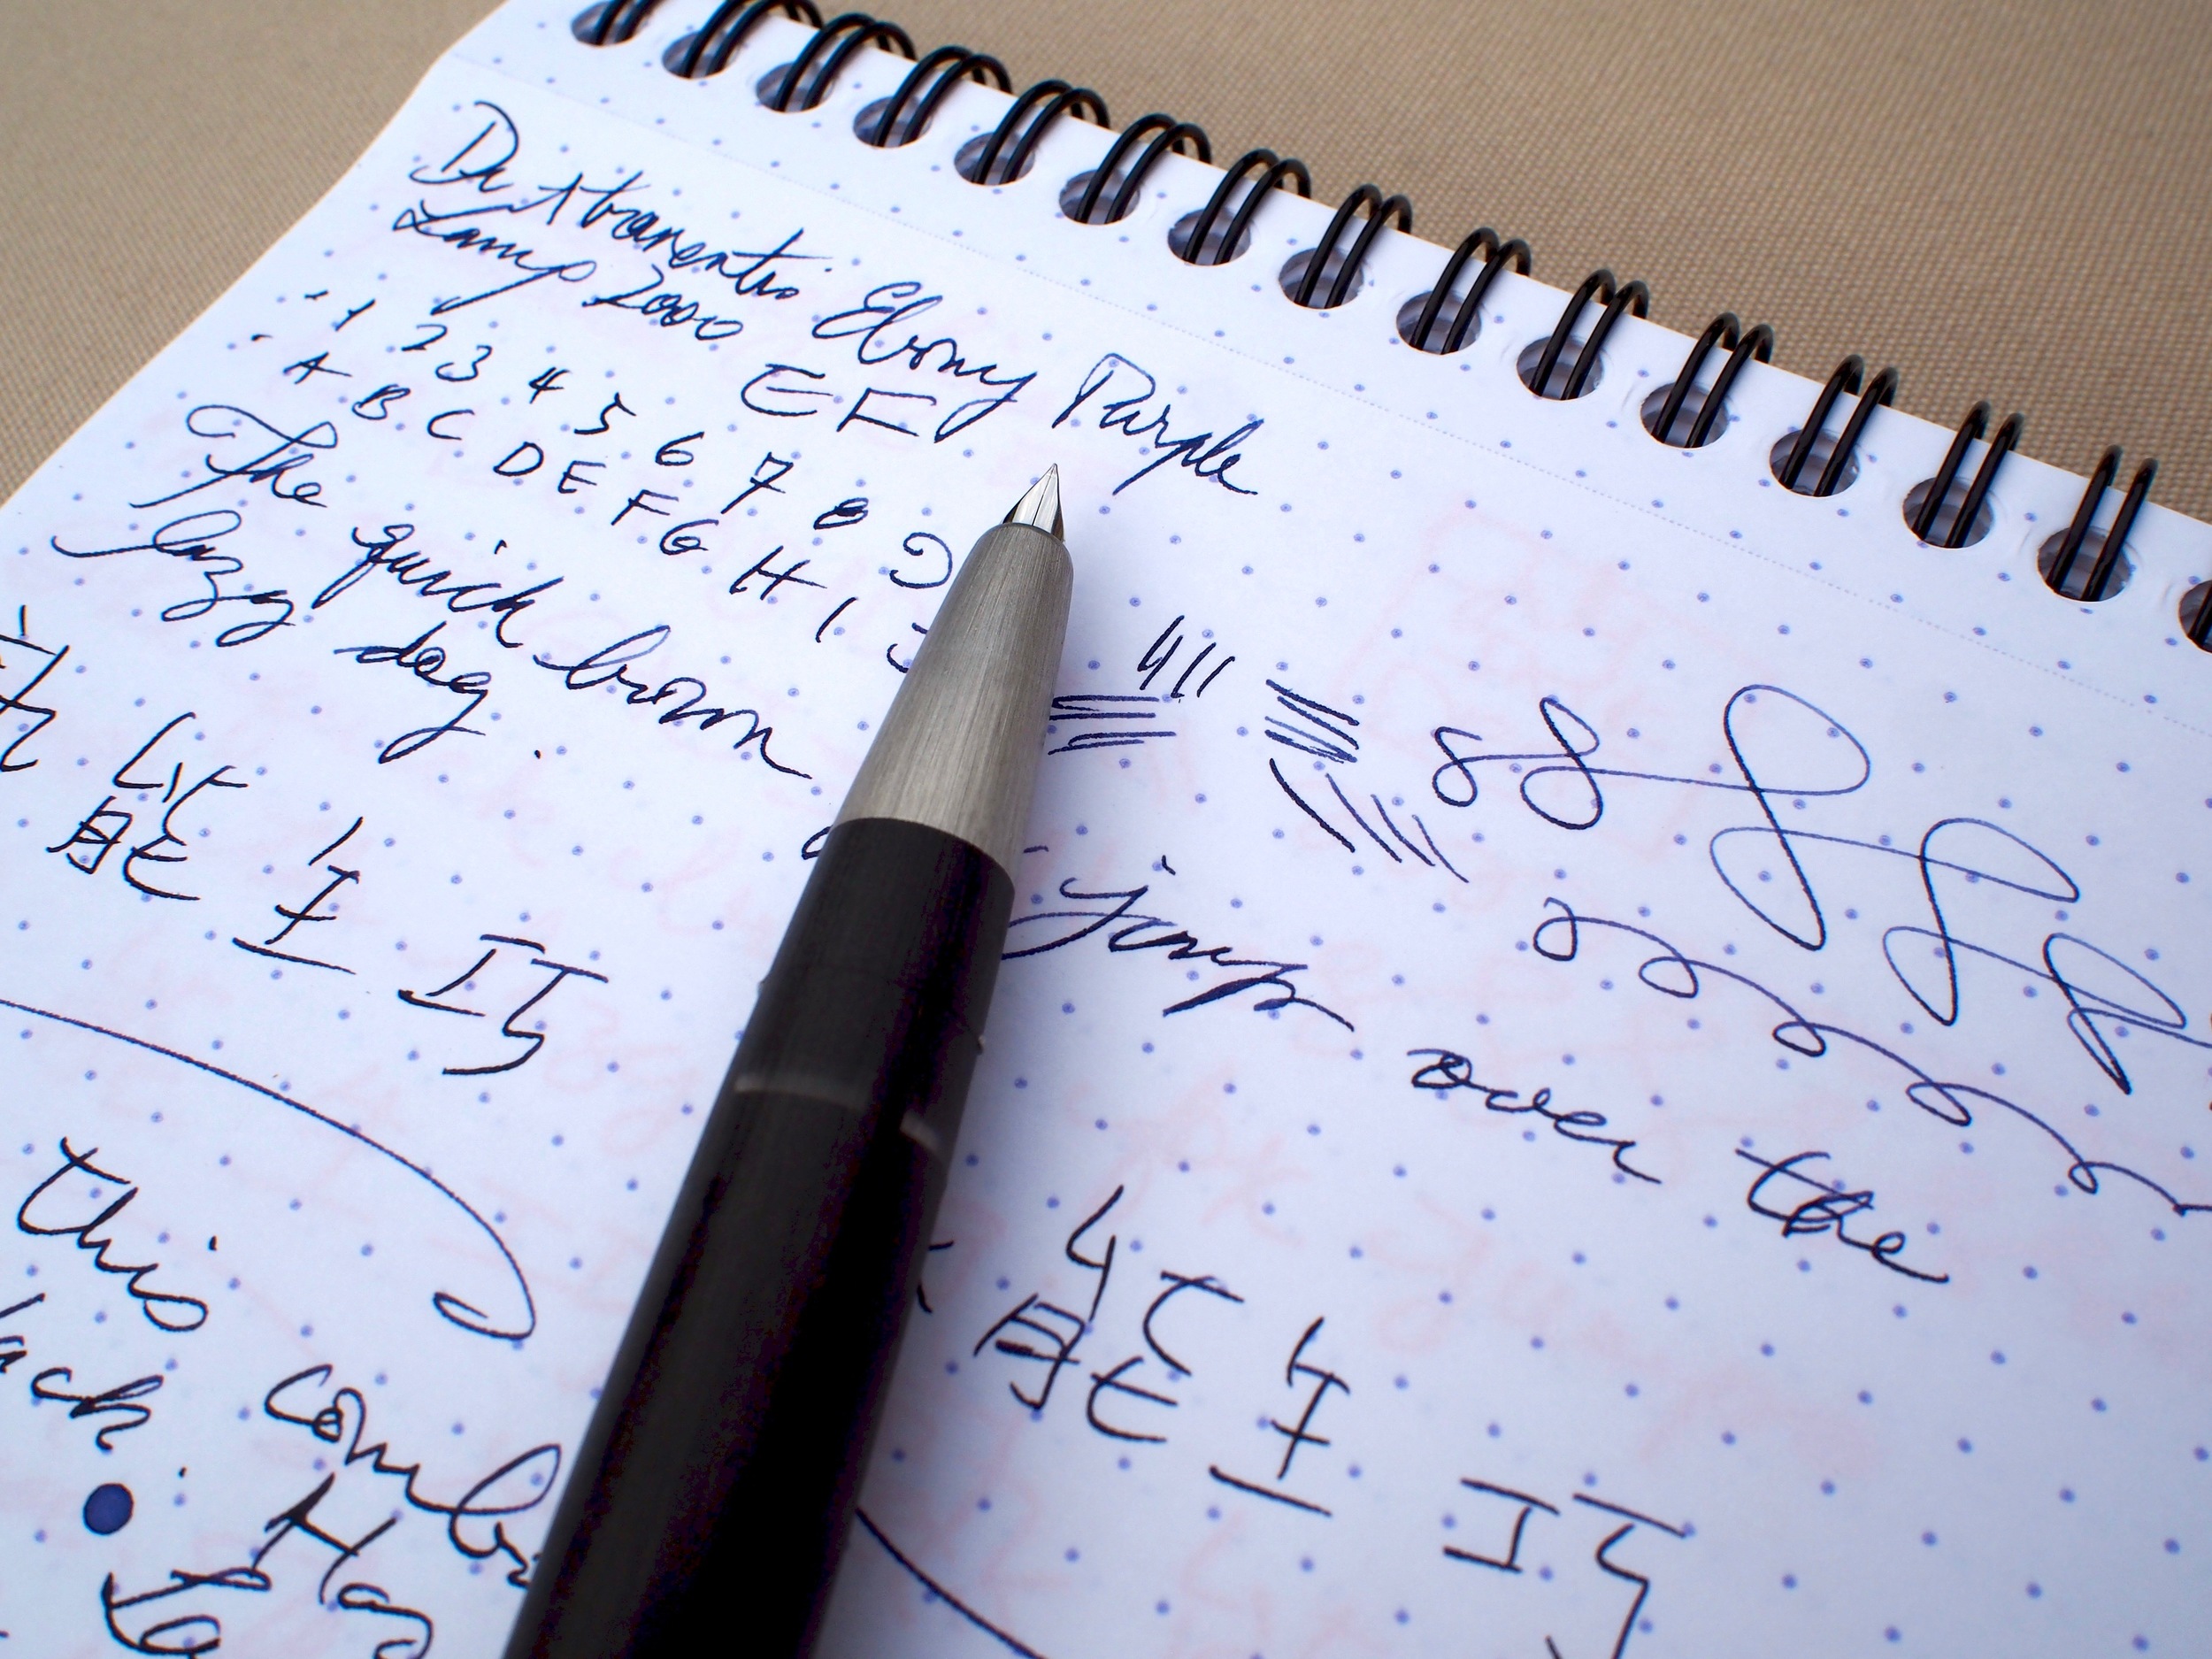 De Atramentis Ebony Purple
Lamy 2000 EF
1 2 3 4 5 6 7 8 9
A B C D E F G H I J
The quick brown jump over the
lazy dog.
能 生 巧 能 生 巧
this